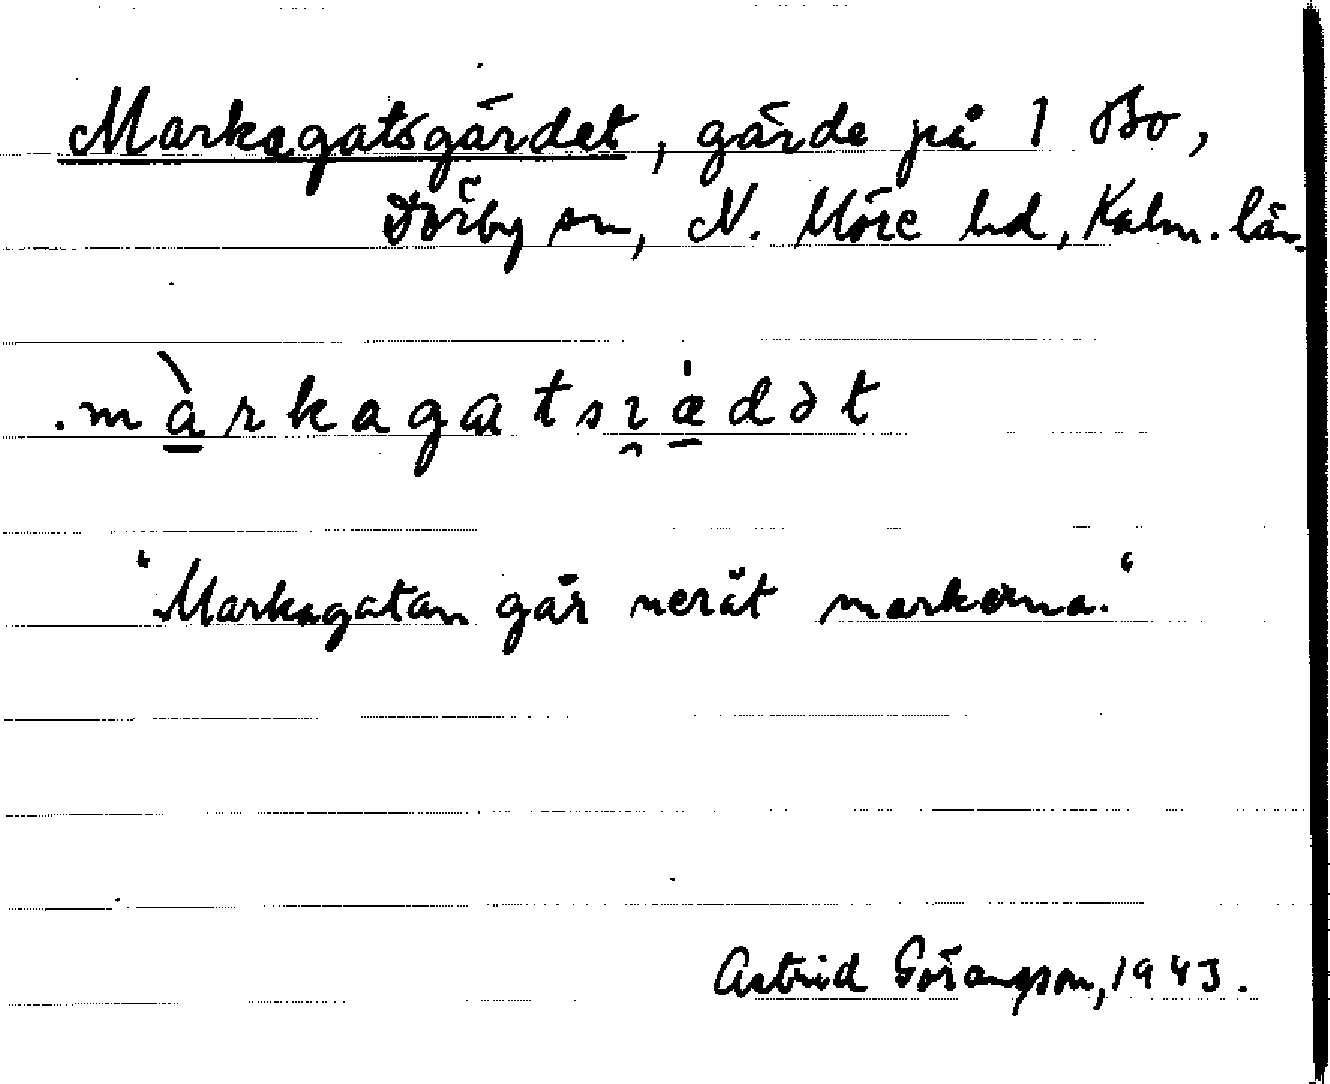 Markagatsgärdet, gärde på 1 Bo,
Dörby sn, N. Möre hd, Kalm. län.
.màrkagatsɿædət
"Markagatan går neråt markerna."
Astrid Göransson, 1943.